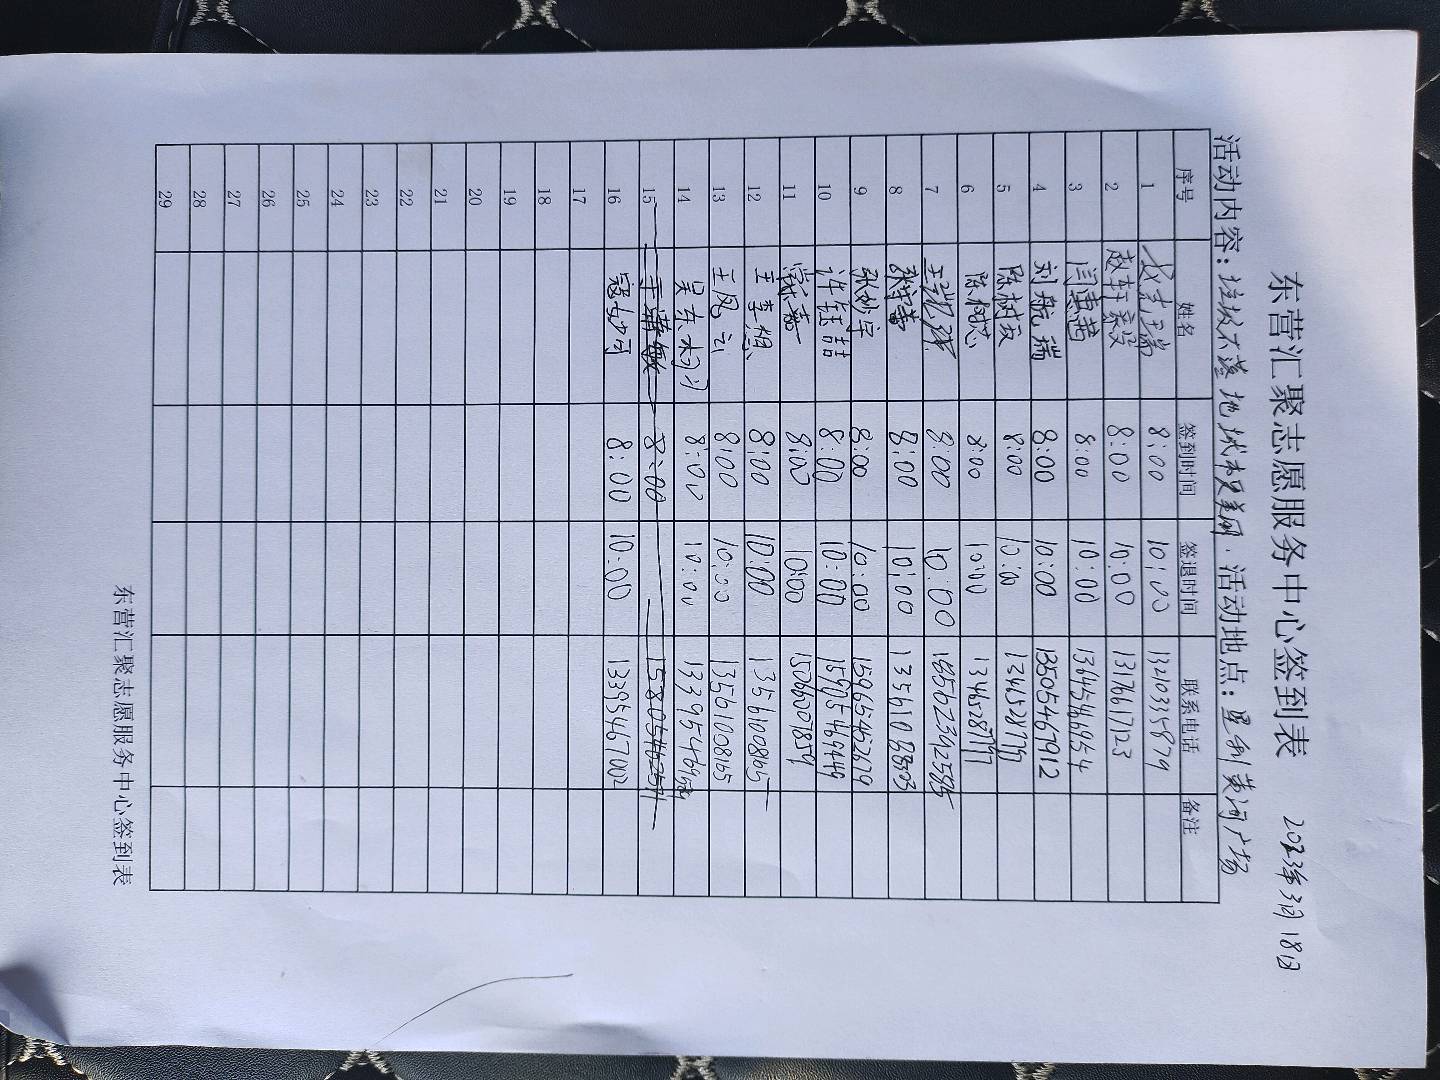 东营汇聚志愿服务中心签到表 2023年3月18日
活动内容：垃圾不落地 城市更美丽 . 活动地点：垦利黄河广场
序号 姓名 签到时间 签退时间 联系电话 备注
1 8:00 10:00 13210335879
2 赵轩毅 8:00 10:00 13176617123
3 闫惠茜 8:00 10:00 13645466954
4 刘航瑞 8:00 10:00 13505467912
5 陈树 8:00 10:00
6 陈树芯 8:00 10:00
7 8:00 10:00
8 8:00 10:00
9 张妙宇 8:00 10:00 15965462679
10 许钰喆 8:00 10:00 15905469449
11 8:00 10:00 15066007859
12 王 8:00 10:00 13561008165
13 王风云 8:00 10:00 13561008165
14 吴东 8:00 10:00
15 8:00
16 寇 8:00 10:00 13395467002
17
18
19
20
21
22
23
24
25
26
27
28
29
东营汇聚志愿服务中心签到表